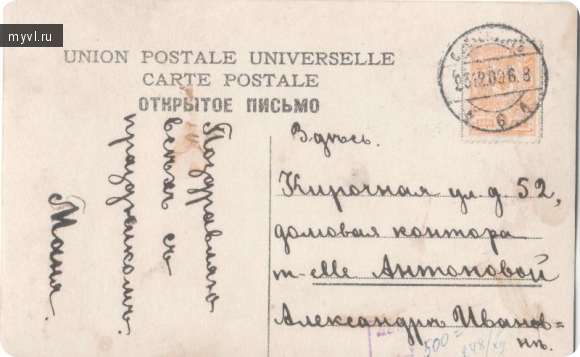 myvl.ru
UNION POSTALE UNIVERSELLE
CARTE POSTALE
ОТКРЫТОЕ ПИСЬМО
Поздравляю
всѣхъ съ
праздникомъ.
Маня.
Здѣсь.
Кирочная ул. д 52,
домовая контора
m-elle Антоновой
Александрѣ Иванов=
нѣ.
500=